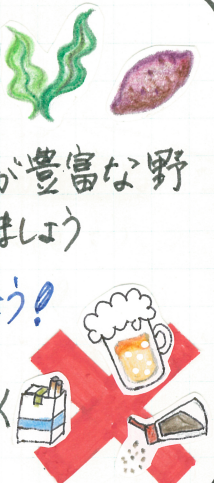 が豊富な野
ましょう
う!
く